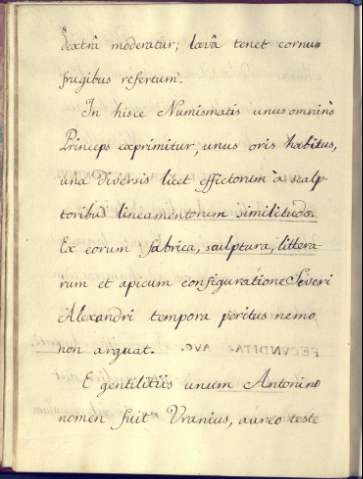 dextrâ moderatur; lævâ tenet cornu
frugibus refertum.
In hisce Numismatis unus omninò
Princeps exprimitur, unus oris habitus,
una diversis licet effictorum à scalp
toribus lineamentorum similitudo.
Ex eorum fabrica, sculptura, littera
rum et apicum configuratione Severi
Alexandri tempora peritus nemo
non arguat.
E gentilitiis unum Antonini
nomen fuit Uranius, aureo teste